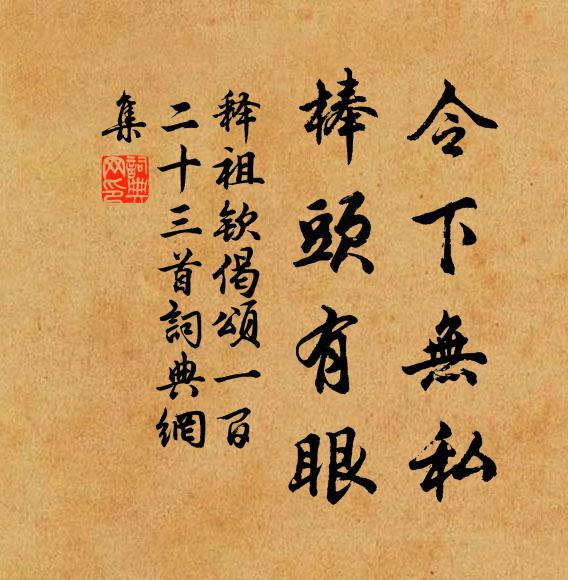 令下無私
棒頭有眼
释祖欽偈頌一百
二十三首詞典網
集
詞典
网印